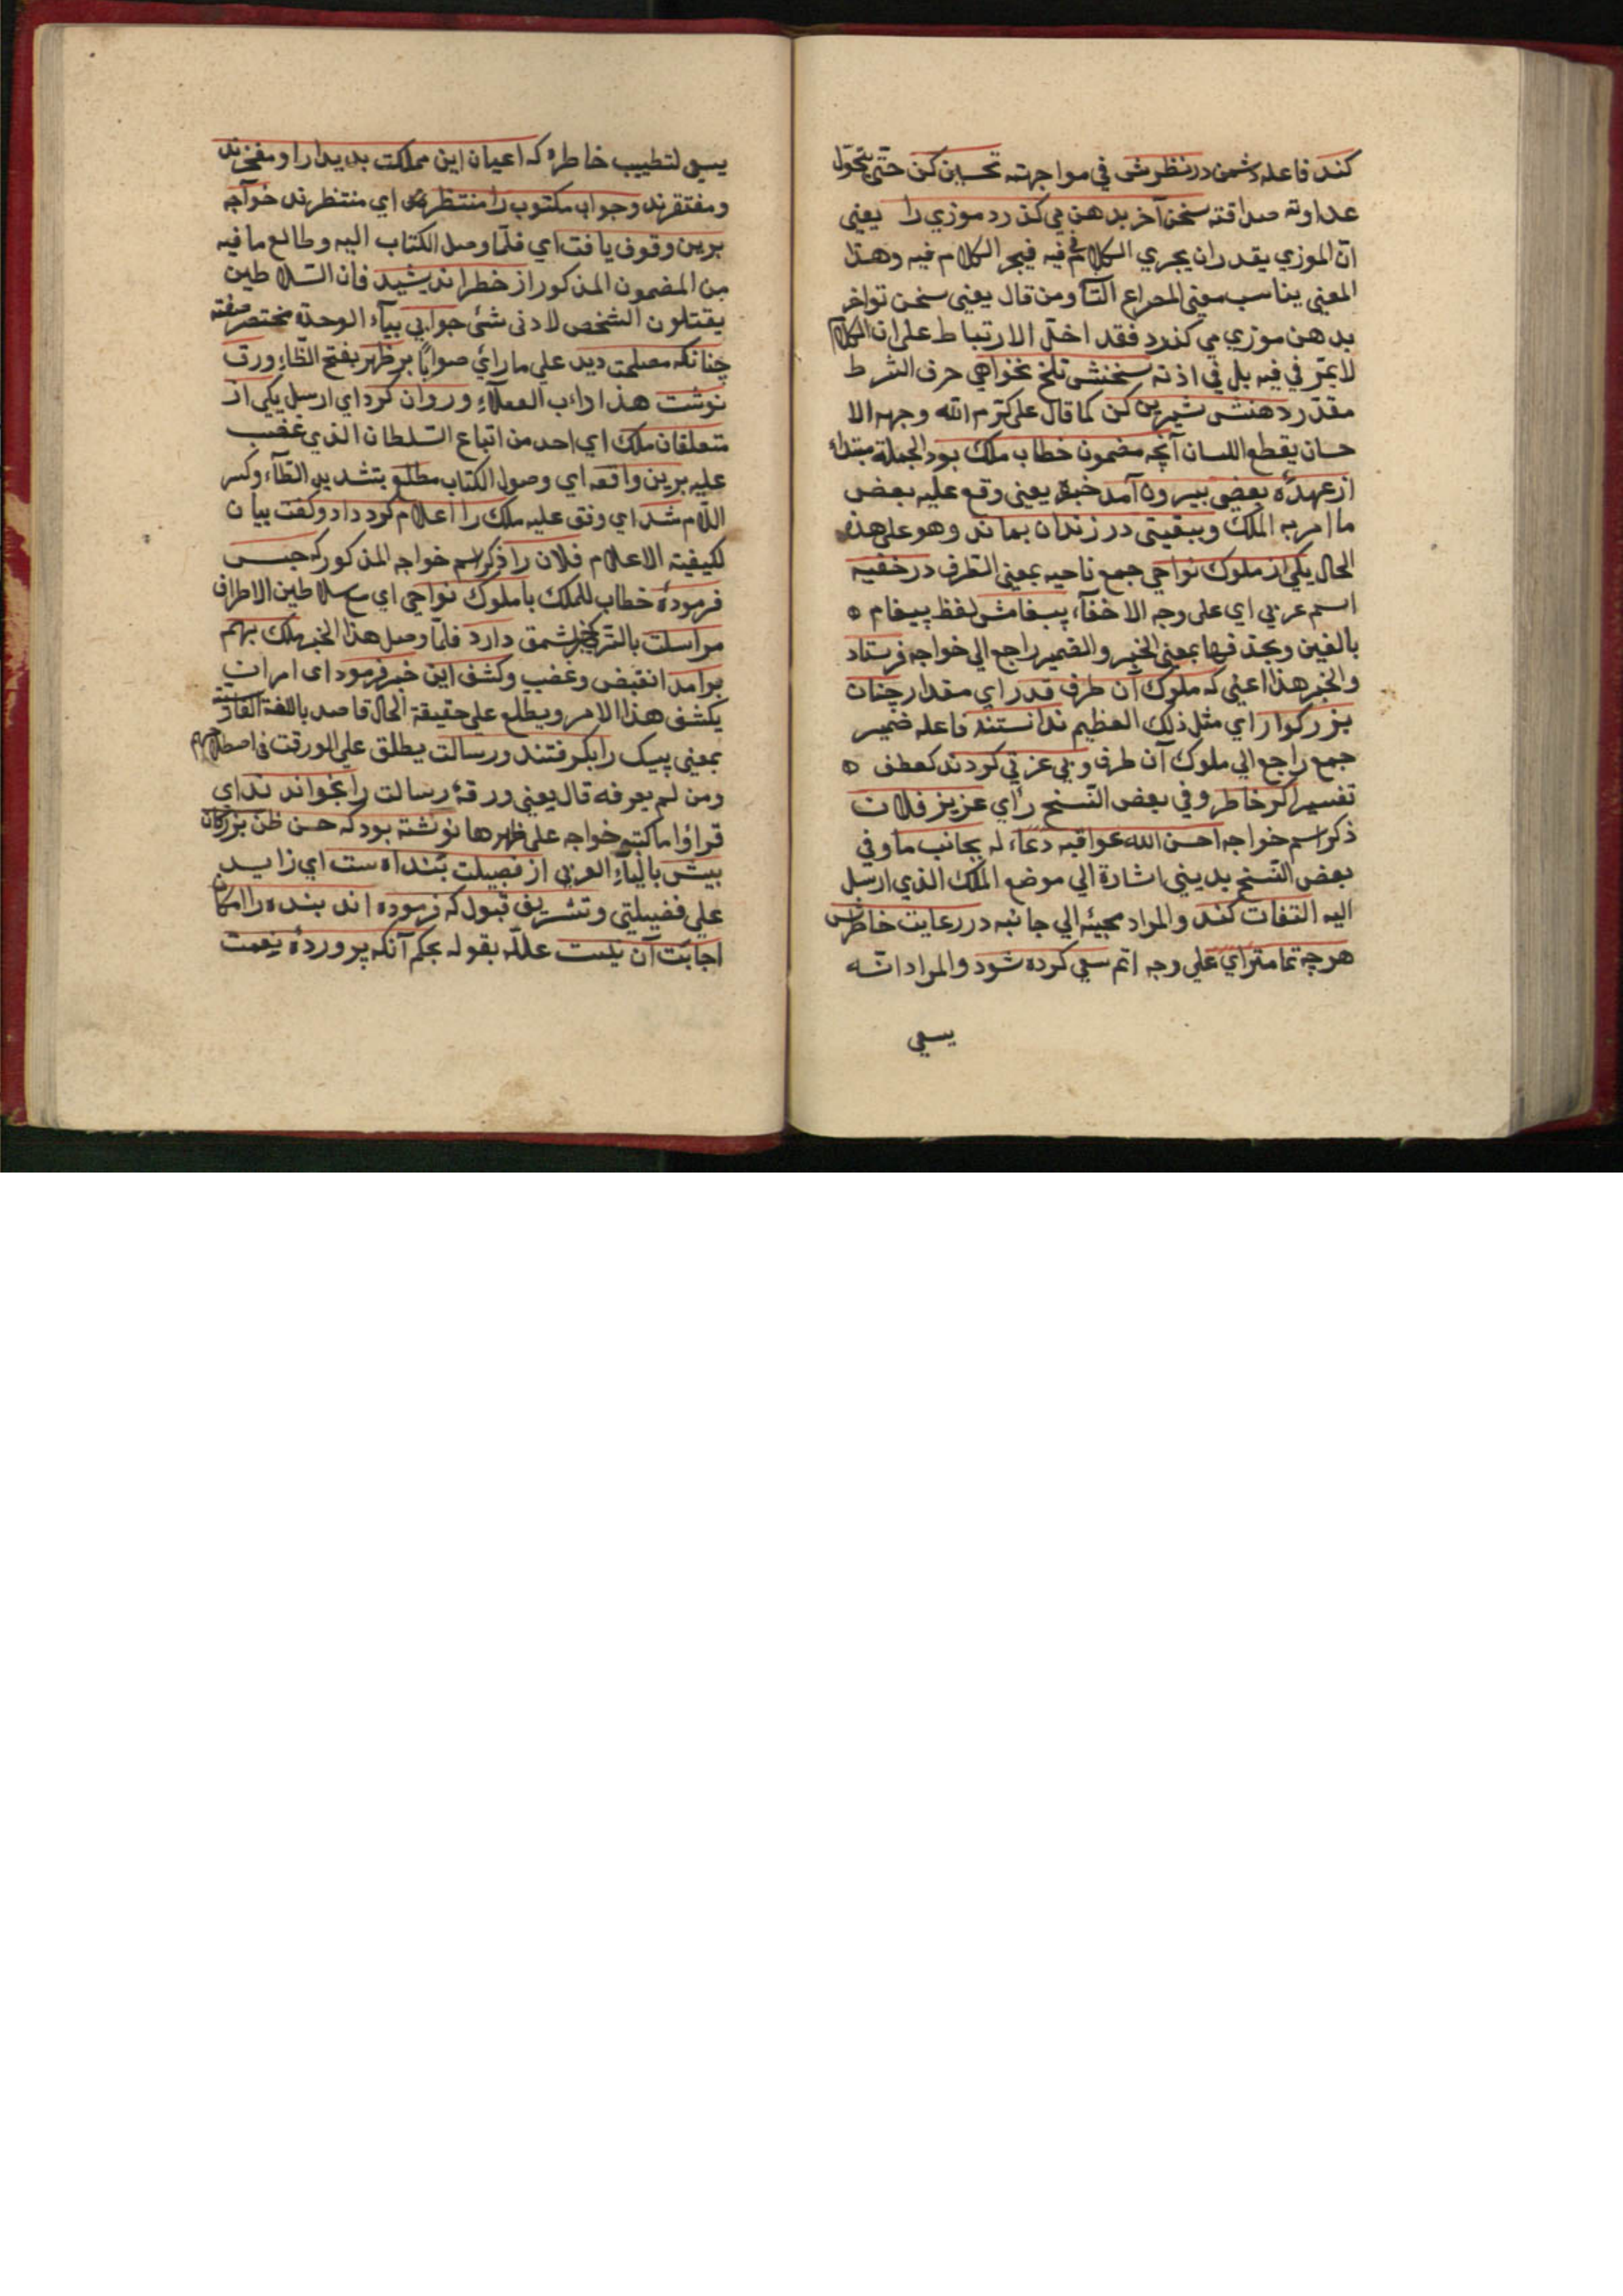 كند فاعله دشمن در نظرش في مواجهته تحسين كن حتى يتحول
عداوته صداقته سخن آخر بدهن مي كذرد موزي را يعني
ان الموزي يقدر ان يجري الكلام في فيه فيجر الكلام فيه وهذا
المعني يناسب معني المصراع التا ومن قال يعني سخن تواخر
بدهن موزي مي كذرد فقد اخل الارتباط على ان الكلام
لا يمر في فيه بل في اذنه سخنش تلخ نخواهي حرف الشرط
مقدر دهنش شيرين كن كما قال علي كرم الله وجهه الا
حسان يقطع اللسان آنچه مضمون خطاب ملك بود الجملة مبتداء
از عهدهٔ بعضي بيرون آمد خبره يعني وقع عليه بعض
ما امر به الملك وببقيتي در زندان بماند وهو على هذه
الحال يكي از ملوك نواحي جمع ناحيه بمعني الطرف در خفيه
اسم عربي اي على وجه الاخفآء پيغامش لفظ پيغام ه
بالغين وبحذفها بمعني الخبر والضمير راجع الي خواجه فرستاد
والخبر هذا اعني كه ملوك آن طرف قدر اي مقدار چنان
بزركوار اي مثل ذلك العظيم ندانستند فاعله ضمير
جمع راجع الي ملوك آن طرف وبي عزتي كردند كعطف ه
تفسير اكر خاطر وفي بعض النسخ رأي عزيز فلان
ذكر اسم خواجه احسن الله عواقبه دعاء له بجانب ما وفي
بعض النسخ بديني اشارة الي موضع الملك الذي ارسل
اليه التفات كند والمراد مجيئه الي جانبه در رعايت خاطرش
هرچه تمامتر اي على وجه اتم سعي كرده شود والمراد انه
يسعي
يسعي لتطييب خاطره كه اعيان اين مملكت بديدار او مفخرند
ومفتقرند وجواب مكتوب را منتظر اي منتظرند خواجه
برين وقوف يافت اي فلما وصل الكتاب اليه وطالع ما فيه
من المضمون المذكور از خطر انديشيد فان السلاطين
يقتلون الشخص لادني شئ جوابي بيآء الوحدة مختصر صفته
چنانكه مصلحت ديد على ما رأي صوابا بر ظهر بفتح الظاء ورق
نوشت هذا داب العقلاء وروان كرد اي ارسل يكي از
متعلقان ملك اي احد من اتباع السلطان الذي غضب
عليه برين واقعه اي وصول الكتاب مطلع بتشديد الطآء وكسر
اللام شد اي وقف عليه ملك را اعلام كرد داد وكفت بيان
لكيفية الاعلام فلان را ذكر اسم خواجه المذكور كه حبس
فرمودهٔ خطاب للملك با ملوك نواحي اي مع سلاطين الاطراف
مراسلت بالتركي خبرلشمق دارد فلما وصل هذا الخبر ملك بهم
برآمد انقبض وغضب وكشف اين خبر فرمود اي امر ان
يكشف هذا الامر ويطلع على حقيقة الحال قاصد باللغة الفارسية
بمعني پيك را بكرفتند ورسالت يطلق على الورقة في اصطلاحهم
ومن لم يعرفه قال يعني ورقهٔ رسالت را بخواندند اي
قراؤا ما كتبه خواجه على ظهرها نوشته بود كه حسن ظن بزركان
بيش باليآء العربي از فضيلت بنداه ست اي زايد
على فضيلتي وتشريف قبول كه فرموده اند بنده را امكان
اجابت آن نيست علله بقوله بحكم آنكه پروردهٔ نعمت